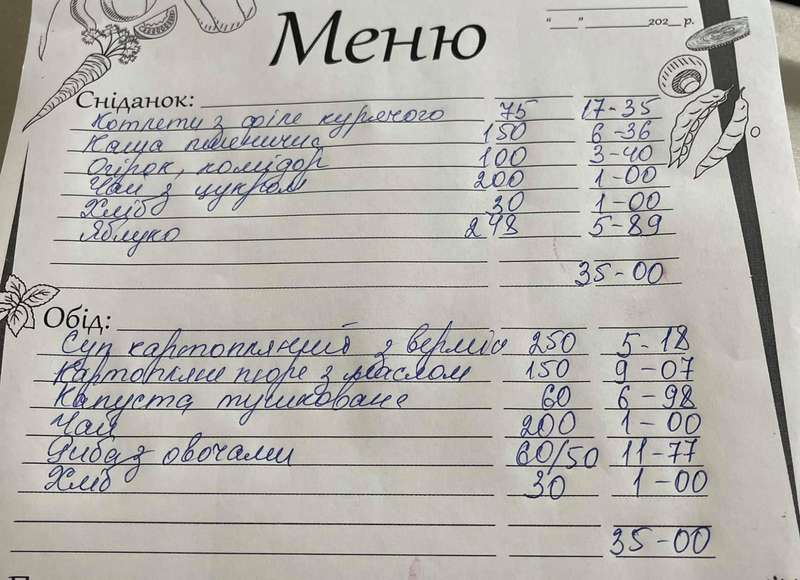 Меню
"___" ________202__ р.
Сніданок:
Котлети з філе курячого 75 17-35
Каша пшенична 150 6-36
Огірок, помідор 100 3-40
Чай з цукром 200 1-00
Хліб 30 1-00
Яблуко 248 5-89
35-00
Обід:
Суп картопляний з верміс 250 5-18
Картопляне пюре з маслом 150 9-07
Капуста тушкована 60 6-98
Чай 200 1-00
Риба з овочами 60/50 11-77
Хліб 30 1-00
35-00